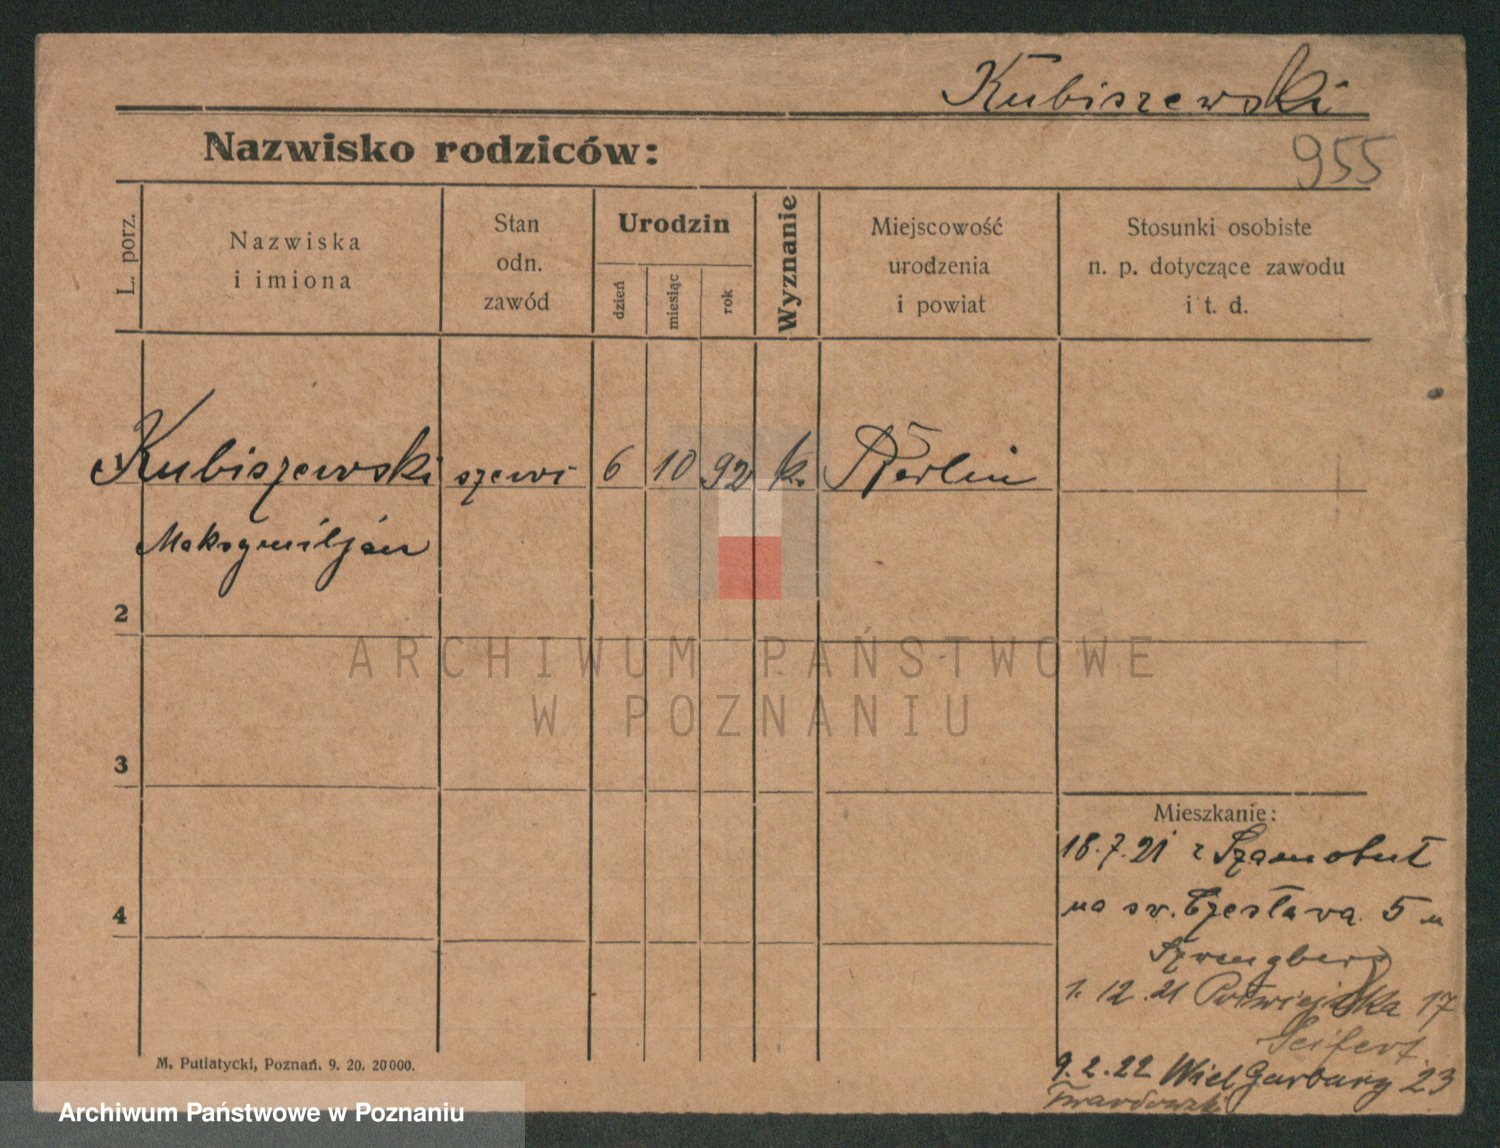 Kubiszewski
Nazwisko rodziców:
955
L. porz.
Nazwiska
i imiona
Stan
odn.
zawód
Urodzin
dzień
miesiąc
rok
Wyznanie
Miejscowość
urodzenia
i powiat
Stosunki osobiste
n. p. dotyczące zawodu
i t. d.
Kubiszewski szewc 6 10 92 k. Berlin
Maksymiljan
2
ARCHIWUM PAŃSTWOWE
W POZNANIU
3
Mieszkanie:
18.7.21 z Szamotuł
4
na św. Czesława 5 u
1.12.21 Półwiejska 17
Seifert
9.2.22 Wiel Garbary 23
Twardowski
M. Putiatycki, Poznań. 9. 20. 20000.
Archiwum Państwowe w Poznaniu